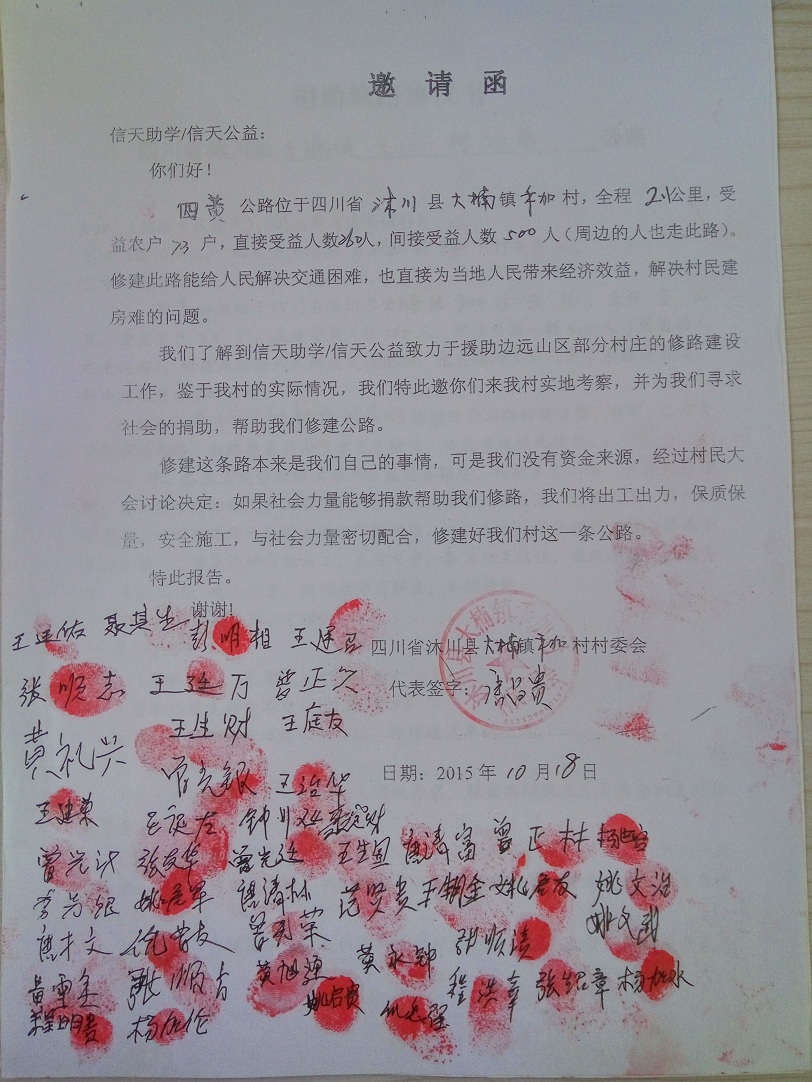 邀请函
信天助学/信天公益：
你们好！
四黄公路位于四川省沐川县大楠镇禾加村，全程2.1公里，受
益农户73户，直接受益人数260人，间接受益人数500人（周边的人也走此路）。
修建此路能给人民解决交通困难，也直接为当地人民带来经济效益，解决村民建
房难的问题。
我们了解到信天助学/信天公益致力于援助边远山区部分村庄的修路建设
工作，鉴于我村的实际情况，我们特此邀你们来我村实地考察，并为我们寻求
社会的捐助，帮助我们修建公路。
修建这条路本来是我们自己的事情，可是我们没有资金来源，经过村民大
会讨论决定：如果社会力量能够捐款帮助我们修路，我们将出工出力，保质保
量，安全施工，与社会力量密切配合，修建好我们村这一条公路。
特此报告。
谢谢!
彭明相
四川省沐川县大楠镇禾加村村委会
张顺志 王廷万 曾正久
代表签字：
王生财 王庭友
黄礼兴
王治华
日期：2015年10月18日
王建荣
张友华 曾光廷 曾正林
范贤贵 姚文治
姚文武
张顺清
黄旭 黄永钟
程洪章 张绍章 杨加水
程明贵 杨加伦 姚启贵